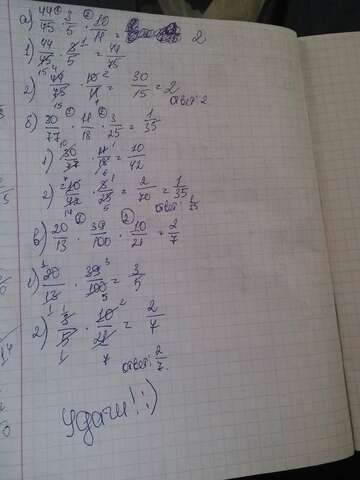 а) 44/45 · 3/5 · 10/11 = 2
1) 44/45 · 3/5 = 44/75
2) 44/75 · 10/11 = 30/15 = 2
ответ: 2
б) 30/77 · 11/18 · 3/25 = 1/35
1) 30/77 · 11/18 = 10/42
2) 10/42 · 3/25 = 2/70 = 1/35
ответ: 1/35
в) 20/13 · 39/100 · 10/21 = 2/7
1) 20/13 · 39/100 = 3/5
2) 3/5 · 10/21 = 2/7
ответ: 2/7
Удачи! :)